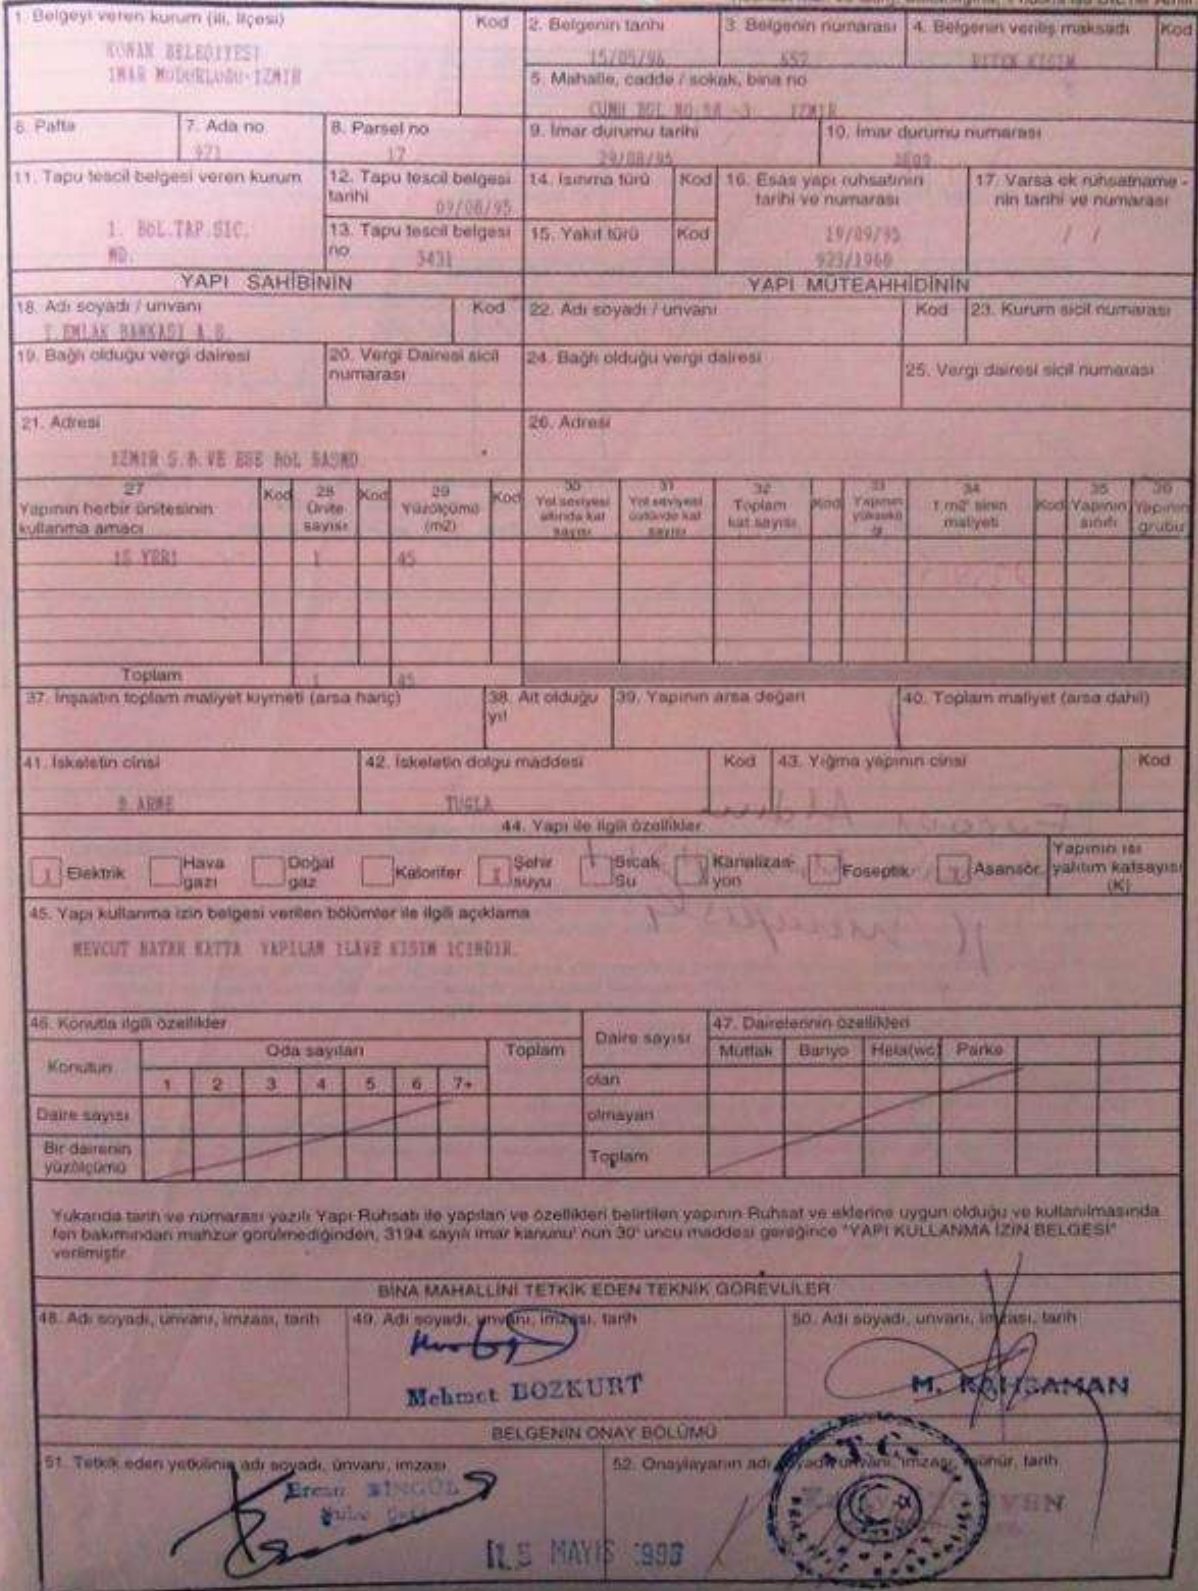 1. Belgeyi veren kurum (ili, ilçesi)
Kod
KONAK BELEDIYESI
IMAR MUDURLUGU-IZMIR
2. Belgenin tarihi
15/05/96
3. Belgenin numarası
657
4. Belgenin veriliş maksadı
Kod
BITEN KISIM
5. Mahalle, cadde / sokak, bina no
CUMH BUL NO:58 -3 IZMIR
6. Pafta
7. Ada no
971
8. Parsel no
17
9. İmar durumu tarihi
29/08/95
10. İmar durumu numarası
11. Tapu tescil belgesi veren kurum
1. BOL.TAP.SIC.
MD.
12. Tapu tescil belgesi
tarihi
09/08/95
13. Tapu tescil belgesi
no
5431
14. Isınma türü
Kod
15. Yakıt türü
Kod
16. Esas yapı ruhsatının
tarihi ve numarası
19/09/95
923/1960
17. Varsa ek ruhsatname -
nin tarihi ve numarası
/ /
YAPI SAHİBİNİN
YAPI MÜTEAHHİDİNİN
18. Adı soyadı / unvanı
Kod
T.EMLAK BANKASI A.S.
22. Adı soyadı / unvanı
Kod
23. Kurum sicil numarası
19. Bağlı olduğu vergi dairesi
20. Vergi Dairesi sicil
numarası
24. Bağlı olduğu vergi dairesi
25. Vergi dairesi sicil numarası
21. Adresi
IZMIR S.B.VE EGE BOL BASMD
26. Adresi
27
Yapının herbir ünitesinin
kullanma amacı
Kod
28
Ünite
sayısı
Kod
29
Yüzölçümü
(m2)
Kod
30
Yol seviyesi
altında kat
sayısı
31
Yol seviyesi
üstünde kat
sayısı
32
Toplam
kat sayısı
Kod
33
Yapının
yüksekli
ği
34
1 m2' sinin
maliyeti
Kod
35
Yapının
sınıfı
36
Yapının
grubu
IS YERI 1 45
Toplam 1 45
37. İnşaatın toplam maliyet kıymeti (arsa hariç)
38. Ait olduğu
yıl
39. Yapının arsa değeri
40. Toplam maliyet (arsa dahil)
41. İskeletin cinsi
B.ARME
42. İskeletin dolgu maddesi
Kod
TUGLA
43. Yığma yapının cinsi
Kod
44. Yapı ile ilgili özellikler
Elektrik
Hava
gazı
Doğal
gaz
Kalorifer
Şehir
suyu
Sıcak
Su
Kanalizas-
yon
Foseptik
Asansör
Yapının ısı
yalıtım katsayısı
(K)
45. Yapı kullanma izin belgesi verilen bölümler ile ilgili açıklama
MEVCUT BATAR KATTA YAPILAN ILAVE KISIM ICINDIR.
46. Konutla ilgili özellikler
Daire sayısı
47. Dairelerinin özellikleri
Konutun
Oda sayıları
Toplam
Mutfak Banyo Hela(wc) Parke
1 2 3 4 5 6 7+
olan
Daire sayısı
olmayan
Bir dairenin
yüzölçümü
Toplam
Yukarıda tarih ve numarası yazılı Yapı Ruhsatı ile yapılan ve özellikleri belirtilen yapının Ruhsat ve eklerine uygun olduğu ve kullanılmasında
fen bakımından mahzur görülmediğinden, 3194 sayılı imar kanunu' nun 30' uncu maddesi gereğince "YAPI KULLANMA İZİN BELGESİ"
verilmiştir.
BİNA MAHALLİNİ TETKİK EDEN TEKNİK GÖREVLİLER
48. Adı soyadı, unvanı, imzası, tarih
49. Adı soyadı, unvanı, imzası, tarih
Mehmet BOZKURT
50. Adı soyadı, unvanı, imzası, tarih
M. KAHRAMAN
BELGENİN ONAY BÖLÜMÜ
51. Tetkik eden yetkilinin adı soyadı, ünvanı, imzası
Ercan BİNGÖL
15 MAYIS 1996
52. Onaylayanın adı soyadı, unvanı, imzası, mühür, tarih
T.C.